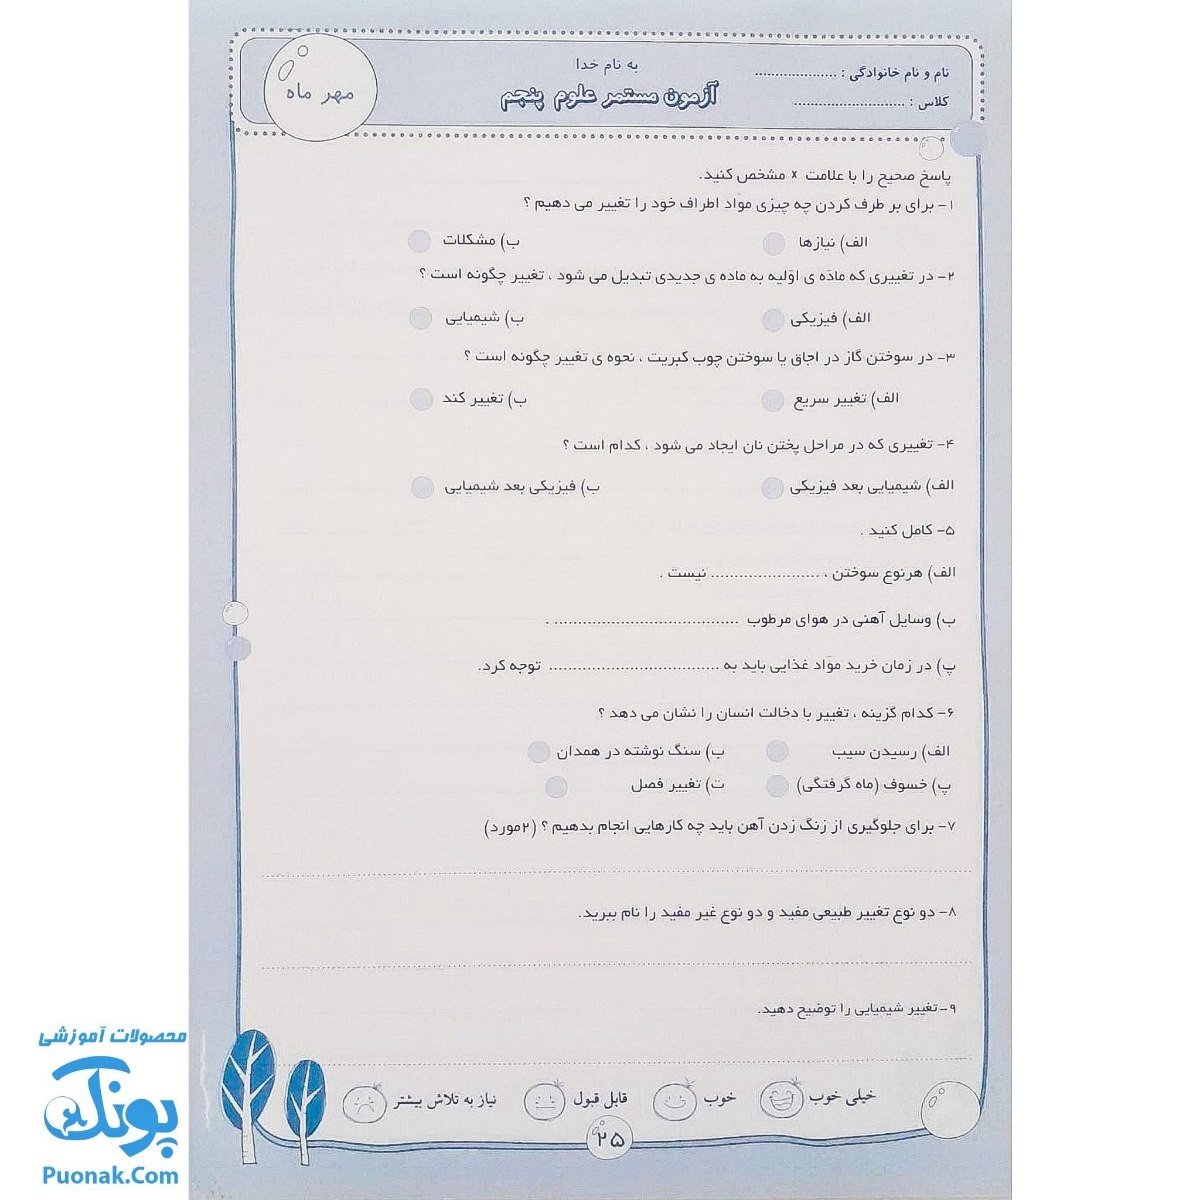 به نام خدا
نام و نام خانوادگی : ....................
آزمون مستمر علوم پنجم
مهر ماه
کلاس : ...........................
پاسخ صحیح را با علامت × مشخص کنید.
۱- برای بر طرف کردن چه چیزی موّاد اطراف خود را تغییر می دهیم ؟
الف) نیازها ب) مشکلات
۲- در تغییری که مادّه ی اوّلیه به ماده ی جدیدی تبدیل می شود ، تغییر چگونه است ؟
الف) فیزیکی ب) شیمیایی
۳- در سوختن گاز در اجاق یا سوختن چوب کبریت ، نحوه ی تغییر چگونه است ؟
الف) تغییر سریع ب) تغییر کند
۴- تغییری که در مراحل پختن نان ایجاد می شود ، کدام است ؟
الف) شیمیایی بعد فیزیکی ب) فیزیکی بعد شیمیایی
۵- کامل کنید .
الف) هرنوع سوختن ، ....................... نیست .
ب) وسایل آهنی در هوای مرطوب ....................................... .
پ) در زمان خرید موّاد غذایی باید به .................................... توجه کرد.
۶- کدام گزینه ، تغییر با دخالت انسان را نشان می دهد ؟
الف) رسیدن سیب ب) سنگ نوشته در همدان
پ) خسوف (ماه گرفتگی) ت) تغییر فصل
۷- برای جلوگیری از زنگ زدن آهن باید چه کارهایی انجام بدهیم ؟ (۲مورد)
۸- دو نوع تغییر طبیعی مفید و دو نوع غیر مفید را نام ببرید.
۹-تغییر شیمیایی را توضیح دهید.
خیلی خوب خوب قابل قبول نیاز به تلاش بیشتر
۲۵
محصولات آموزشی
پونک
Puonak.Com